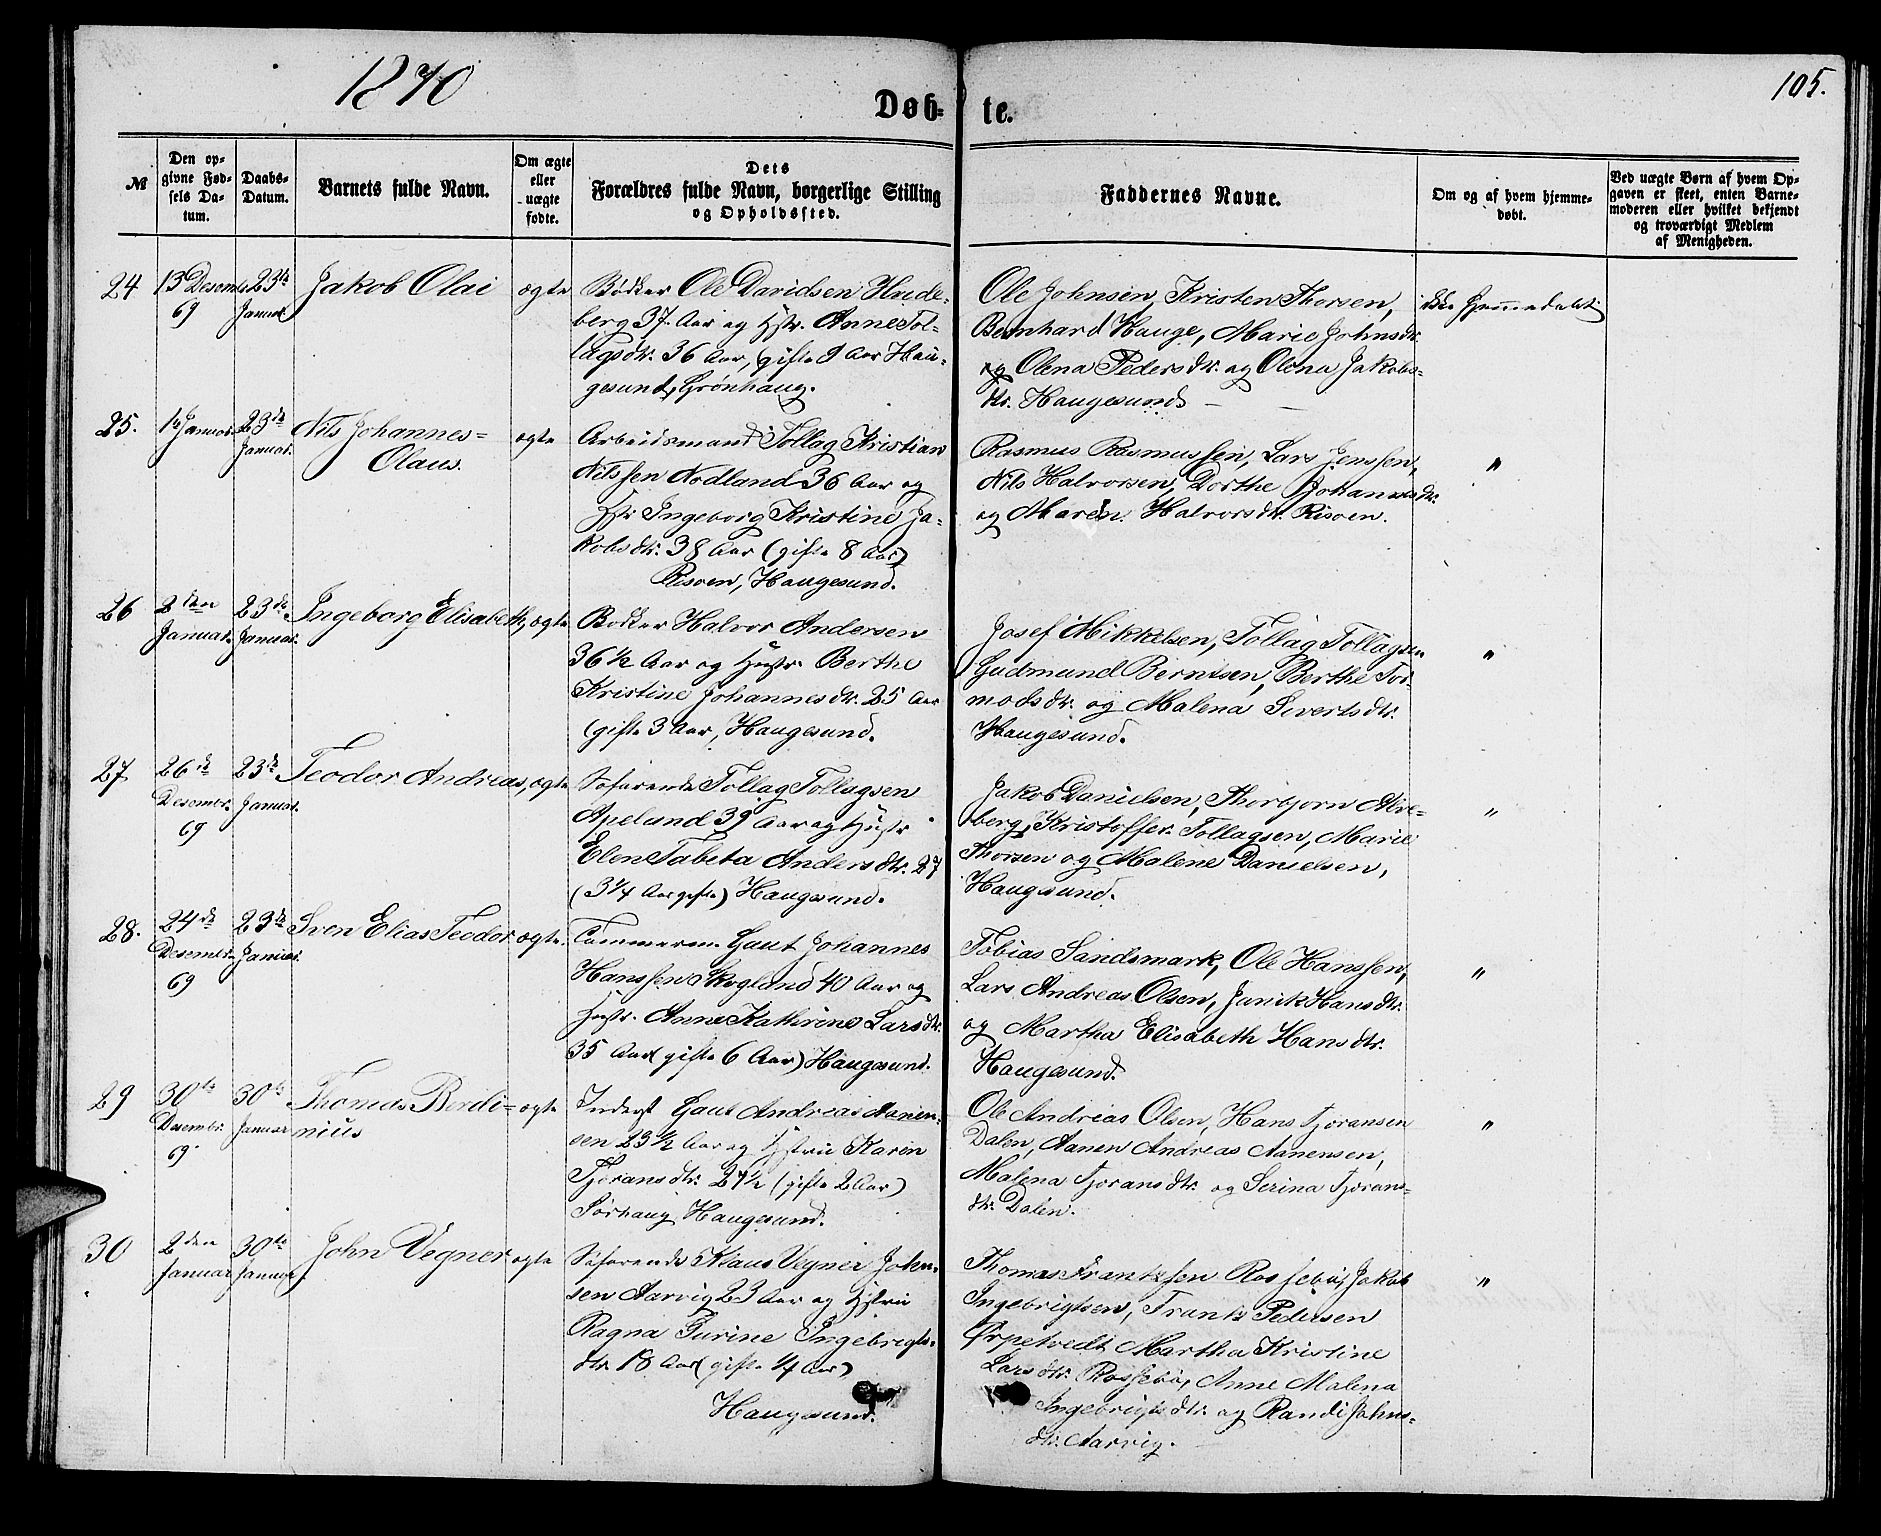 1870
105.
Døb- te.
№
Den opgivne Fødsels Datum.
Daabs-Datum.
Barnets fulde Navn.
Om ægte eller uægte fødte.
Dets Forældres fulde Navn, borgerlige Stilling og Opholdssted.
Faddernes Navne.
Om og af hvem hjemmedøbt.
Ved uægte Børn af hvem Opgaven er skeet, enten Barnemoderen eller hvilket bekjendt og troværdigt Medlem af Menigheden.
24
13 Desembr
69
23de
Januar
Jakob Olai
ægte
Bødker Ole Davidsen
berg 37 Aar og Hstr. Anne Tol-
lagsdtr. 36 Aar, (gifte 9 Aar Hau-
gesund, Grønhaug.
Ole Johnsen, Kristen Thorsen,
Bernhard Hauge, Marie Johnsdtr.
og Olena Pedersdtr. og Olena Jakobs-
dtr. Haugesund
ikke Hjemmedøbt
25.
Januar
23de
Januar.
Nils Johannes-
Olaus.
ægte
Arbeidsmand Tollag Kristian
Nilssen Nodland 36 Aar og
Hstr Ingeborg Kristine Ja-
kobsdtr. 38 Aar (gifte 8 Aar)
Risøen, Haugesund.
Rasmus Rasmussen, Lars Jenssen,
Nils Halvorsen, Dorthe Johannesdtr.
og Maren Halvorsdtr. Risøen.
"
26
2den
Januar.
23de
Januar.
Ingeborg Elisabeth,
ægte
Bødker Halvor Andersen
36 1/2 Aar og Hustr. Berthe
Kristine Johannesdtr. 25 Aar
(gifte 3 Aar, Haugesund.
Josef Mikkelsen, Tollag Tollagsen
Gudmund Berntsen, Berthe Tor-
modsdtr. og Malena Sivertsdtr.
Haugesund.
"
27
26de
Desembr.
69
23de
Januar.
Teodor Andreas,
ægte
Søfarende Tollag Tollagsen
Apeland 39 Aar og Hustr
Elen Tabeta Andersdtr. 27
(3 1/4 Aar gifte) Haugesund.
Jakob Danielsen, Thorbjørn Alve-
berg, Kristoffer Tollagsen, Marie
Thorsen og Malene Danielsen,
Haugesund.
"
28.
24de
Desembr.
69
23de
Januar.
Sven Elias Teodor
ægte.
Tømmerm. Gaut Johannes
Hanssen Skogland 40 Aar og
Hustr. Anne Kathrine Larsdtr.
35 Aar (gifte 6 Aar) Haugesund.
Tobias Sandsmark, Ole Hanssen,
Lars Andreas Olsen, Janik Hansdtr.
og Martha Elisabeth Hansdtr.
Haugesund.
"
29
30te
Desembr.
69.
30te
Januar
Thomas Berdi-
nius
ægte
Inderst Gaut Andreas Aanen-
sen 23 1/2 Aar og Hstru Karen
Tjøransdtr. 27 1/2 (gifte 2 Aar)
Sørhaug, Haugesund.
Ole Andreas Olsen, Hans Tjøransen
Dalen, Aanen Andreas Aanensen,
Malena Tjøransdtr. og Serina Tjørans-
dtr. Dalen.
"
30
2den
Januar
30te
Januar
John Vegner
ægte
Søfarende Klaus Vegner John-
sen Aarvig 23 Aar og Hstru
Ragna Gurine Ingebrigts-
dtr. 18 Aar (gifte 1/4 Aar)
Haugesund.
Thomas Frantzsen Rossebø, Jakob
Ingebrigtsen, Frantz Pedersen
Ørpetvedt, Martha Kristine
Larsdtr. Rossebø, Anne Malena
Ingebrigtsdtr. og Randi Johns-
dtr. Aarvig.
"